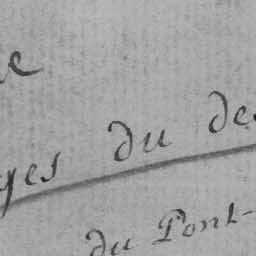 e
ges du de
du Pont-